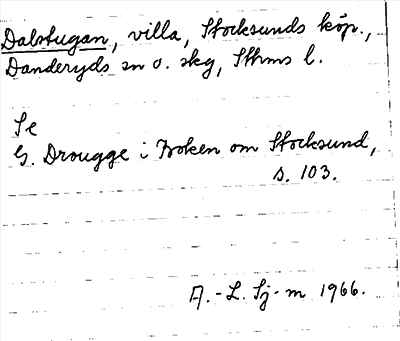 Dalstugan, villa, Stocksunds köp.,
Danderyds sn o. skg, Sthms l.
Se
G. Drougge i Boken om Stocksund,
s. 103.
A.-L. Sj-m 1966.